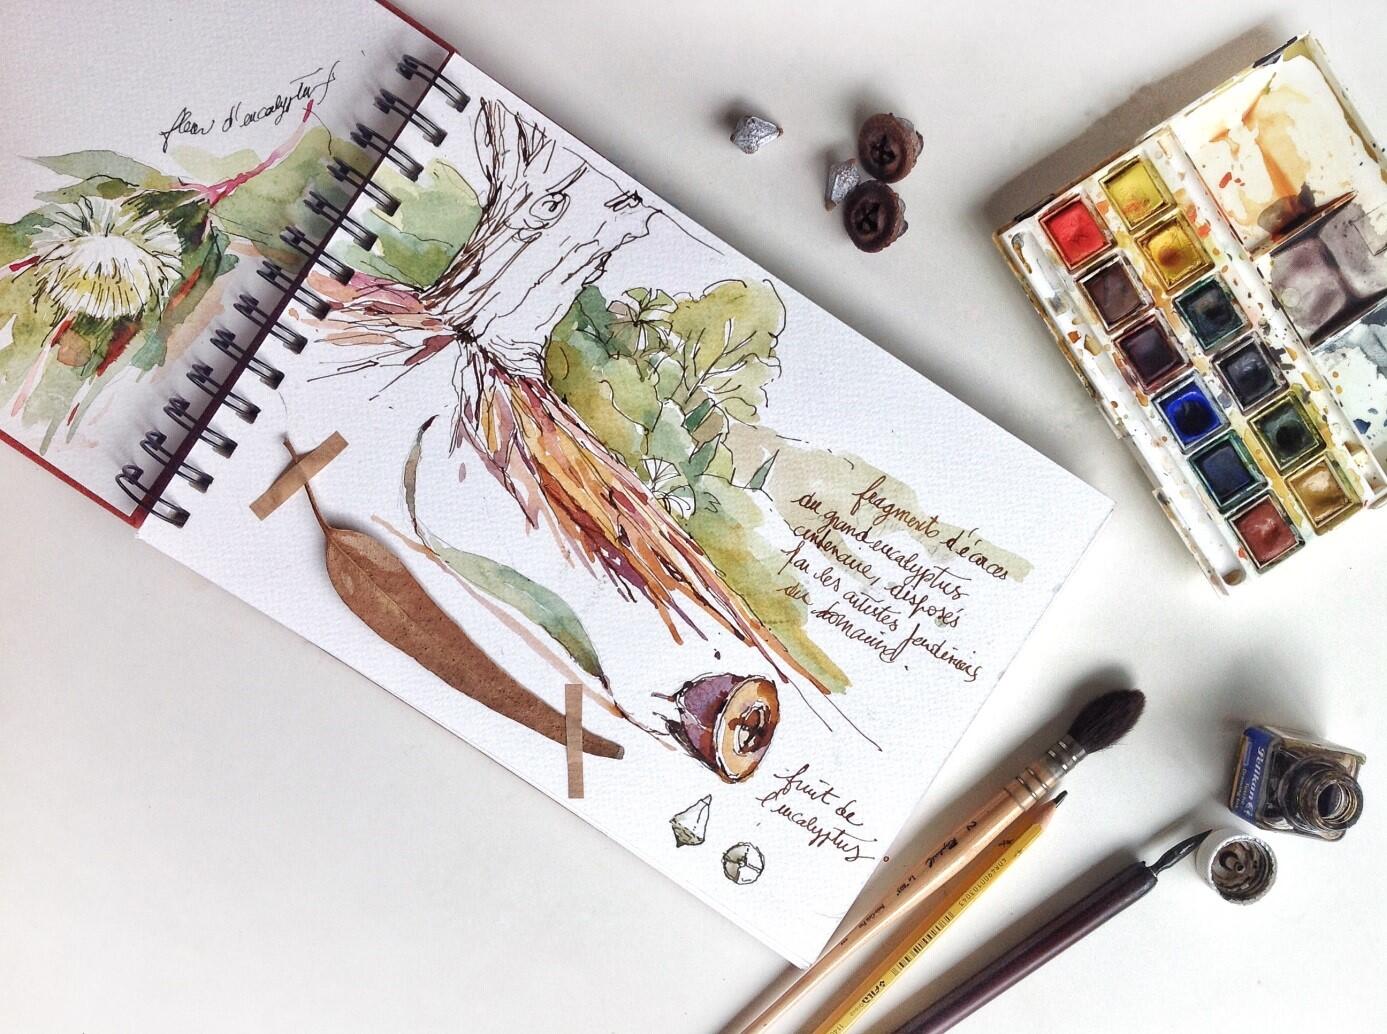 fleur d'eucalyptus
fragments d'écorces
du grand eucalyptus
centenaire, disposés
par les artistes jardiniers
du domaine.
fruit de
l'eucalyptus
Pelikan
Raphaël